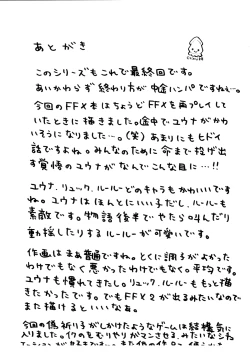 あとがき
このシリーズもこれで最終回です。
あいかわらず終わり方が中途ハンパですねぇ。
今回のFFX本はちょうどFFXを再プレイして
いたときに描きました。途中でユウナがかわ
いそうになりました…。(笑)あまりにもヒドイ
話ですよね。みんなのために命まで投げ出
す覚悟のユウナがなんでこんな目に…!!
ユウナ、リュック、ルールーどのキャラもかわいいです
ね。ユウナはほんとにいい子だし、ルールーも
素敵です。物語後半でやたら叫んだり
動揺したりするルールーが可愛いです。
作画はまぁ普通ですね。とくに調子がよかった
わけでもなく悪かったわけでもなく平均です。
ユウナも慣れてきたし。リュック、ルールーももっと描
きたかったです。でもFFX2が出るみたいなので
また描けるといいなぁ。
今回の偽祈り子がしかけたようなゲームは結構気に
入りました。イクのをもりやりがマンさせる、みたいなシチュ